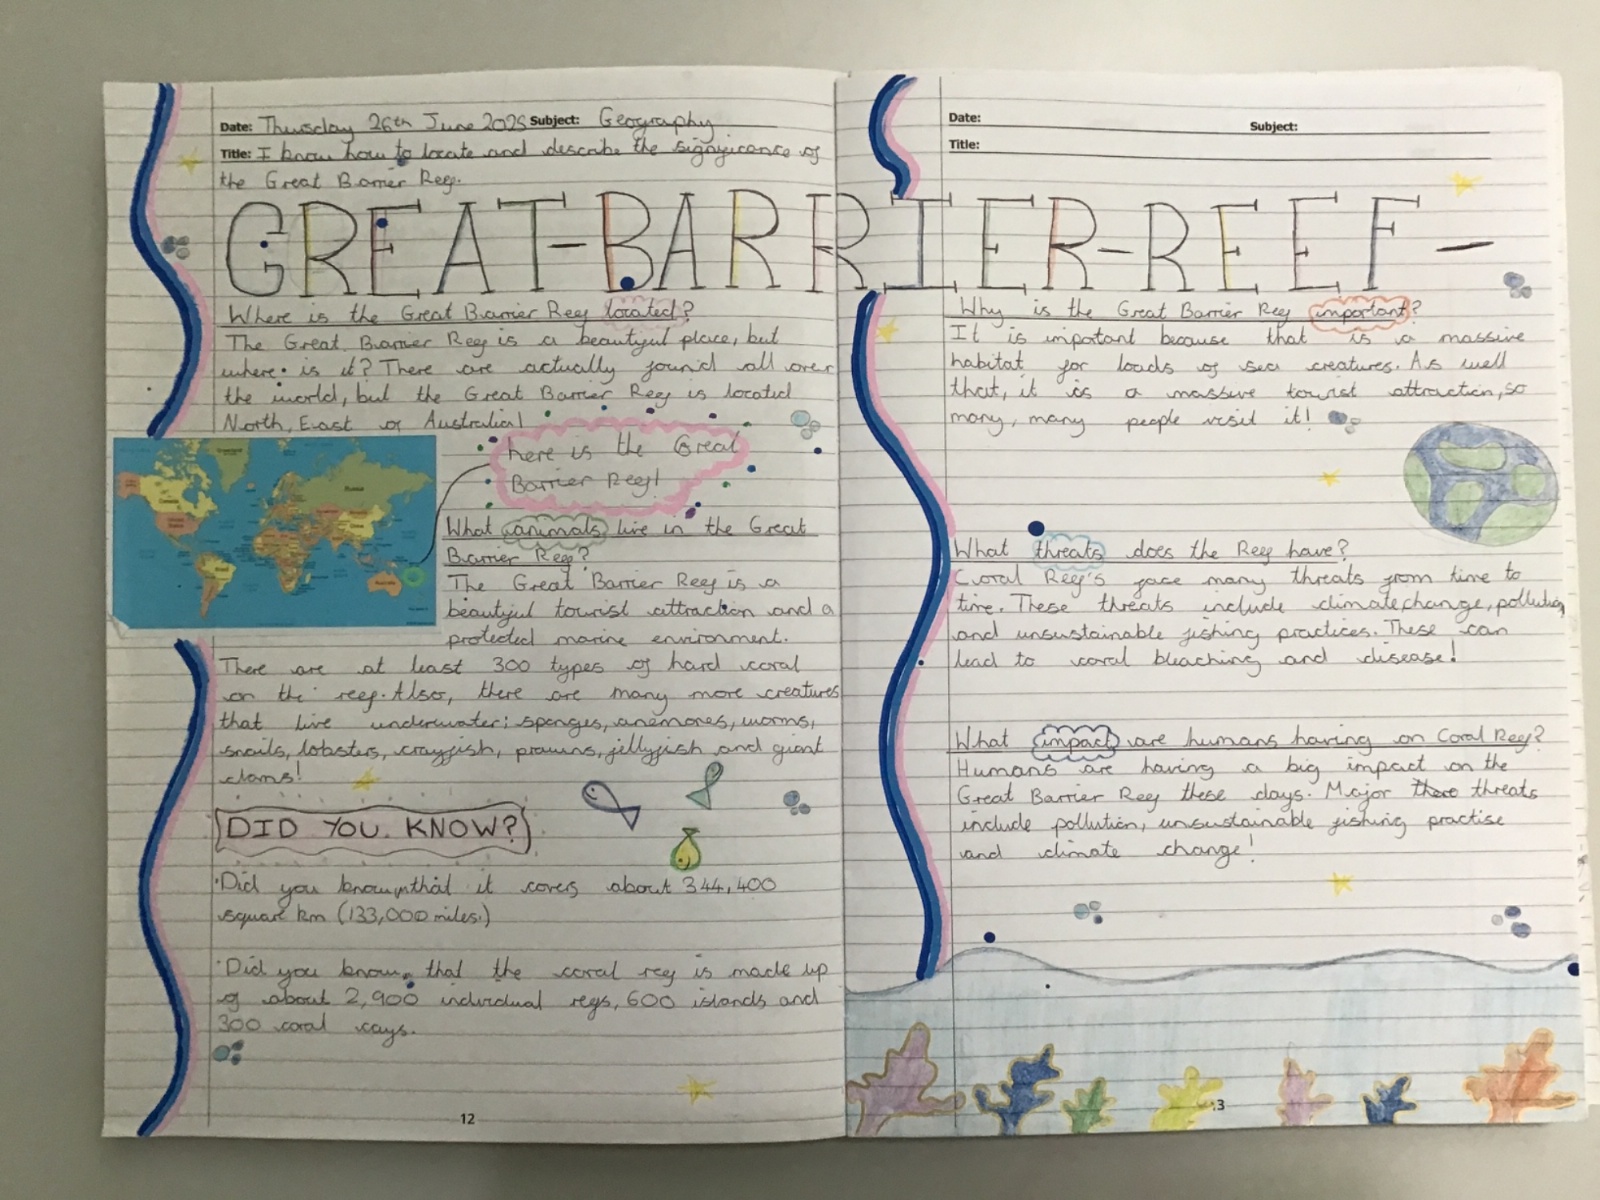 Date: Thursday 26th June 2025 Subject: Geography
Title: I know how to locate and describe the significance of
the Great Barrier Reef.
GREAT-BARRIER-REEF-
Where is the Great Barrier Reef located?
The Great Barrier Reef is a beautiful place, but
where is it? There are actually found all over
the world, but the Great Barrier Reef is located
North, East of Australia!
here is the Great
Barrier Reef!
What animals live in the Great
Barrier Reef?
The Great Barrier Reef is a
beautiful tourist attraction and a
protected marine environment.
There are at least 300 types of hard coral
on the reef. Also, there are many more creatures
that live underwater; sponges, anemones, worms,
snails, lobsters, crayfish, prawns, jellyfish and giant
clams!
DID YOU KNOW?
·Did you know that it covers about 344,400
square km (133,000 miles.)
·Did you know, that the coral reef is made up
of about 2,900 individual refs, 600 islands and
300 coral cays.
12
Date:
Subject:
Title:
Why is the Great Barrier Reef important?
It is important because that is a massive
habitat for loads of sea creatures. As well
that, it is a massive tourist attraction, so
many, many people visit it!
What threats does the Reef have?
Coral Reef's face many threats from time to
time. These threats include climate change, pollution,
and unsustainable fishing practices. These can
lead to coral bleaching and disease!
What impact are humans having on Coral Reef?
Humans are having a big impact on the
Great Barrier Reef these days. Major threats
include pollution, unsustainable fishing practise
and climate change!
13